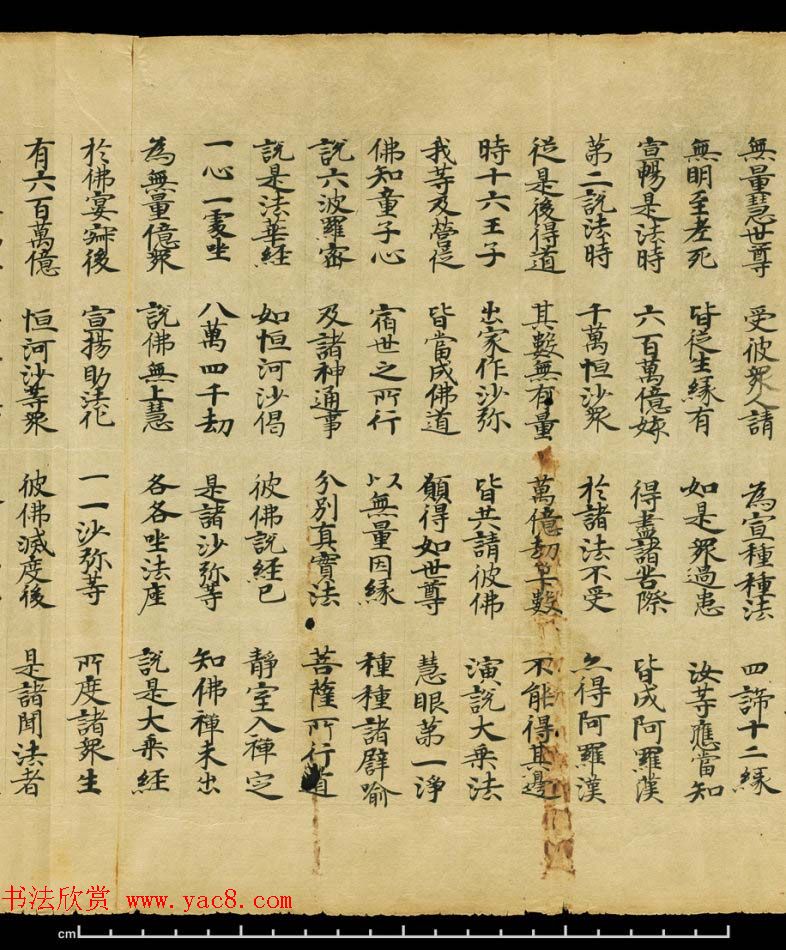 無量慧世尊 受彼眾人請 為宣種種法 四諦十二緣
無明至老死 皆從生緣有 如是眾過患 汝等應當知
宣暢是法時 六百萬億姟 得盡諸苦際 皆成阿羅漢
第二說法時 千萬恒沙眾 於諸法不受 亦得阿羅漢
從是後得道 其數無有量 萬億劫筭數 不能得其邊
時十六王子 出家作沙弥 皆共請彼佛 演說大乘法
我等及營從 皆當成佛道 願得如世尊 慧眼第一淨
佛知童子心 宿世之所行 以無量因緣 種種諸譬喻
說六波羅蜜 及諸神通事 分別真實法 菩薩所行道
說是法華經 如恒河沙偈 彼佛說經已 靜室入禪定
一心一處坐 八萬四千劫 是諸沙弥等 知佛禪未出
為無量億眾 說佛無上慧 各各坐法座 說是大乘經
於佛宴寂後 宣揚助法化 一一沙弥等 所度諸眾生
有六百萬億 恒河沙等眾 彼佛滅度後 是諸聞法者
书法欣赏 www.yac8.com
cm